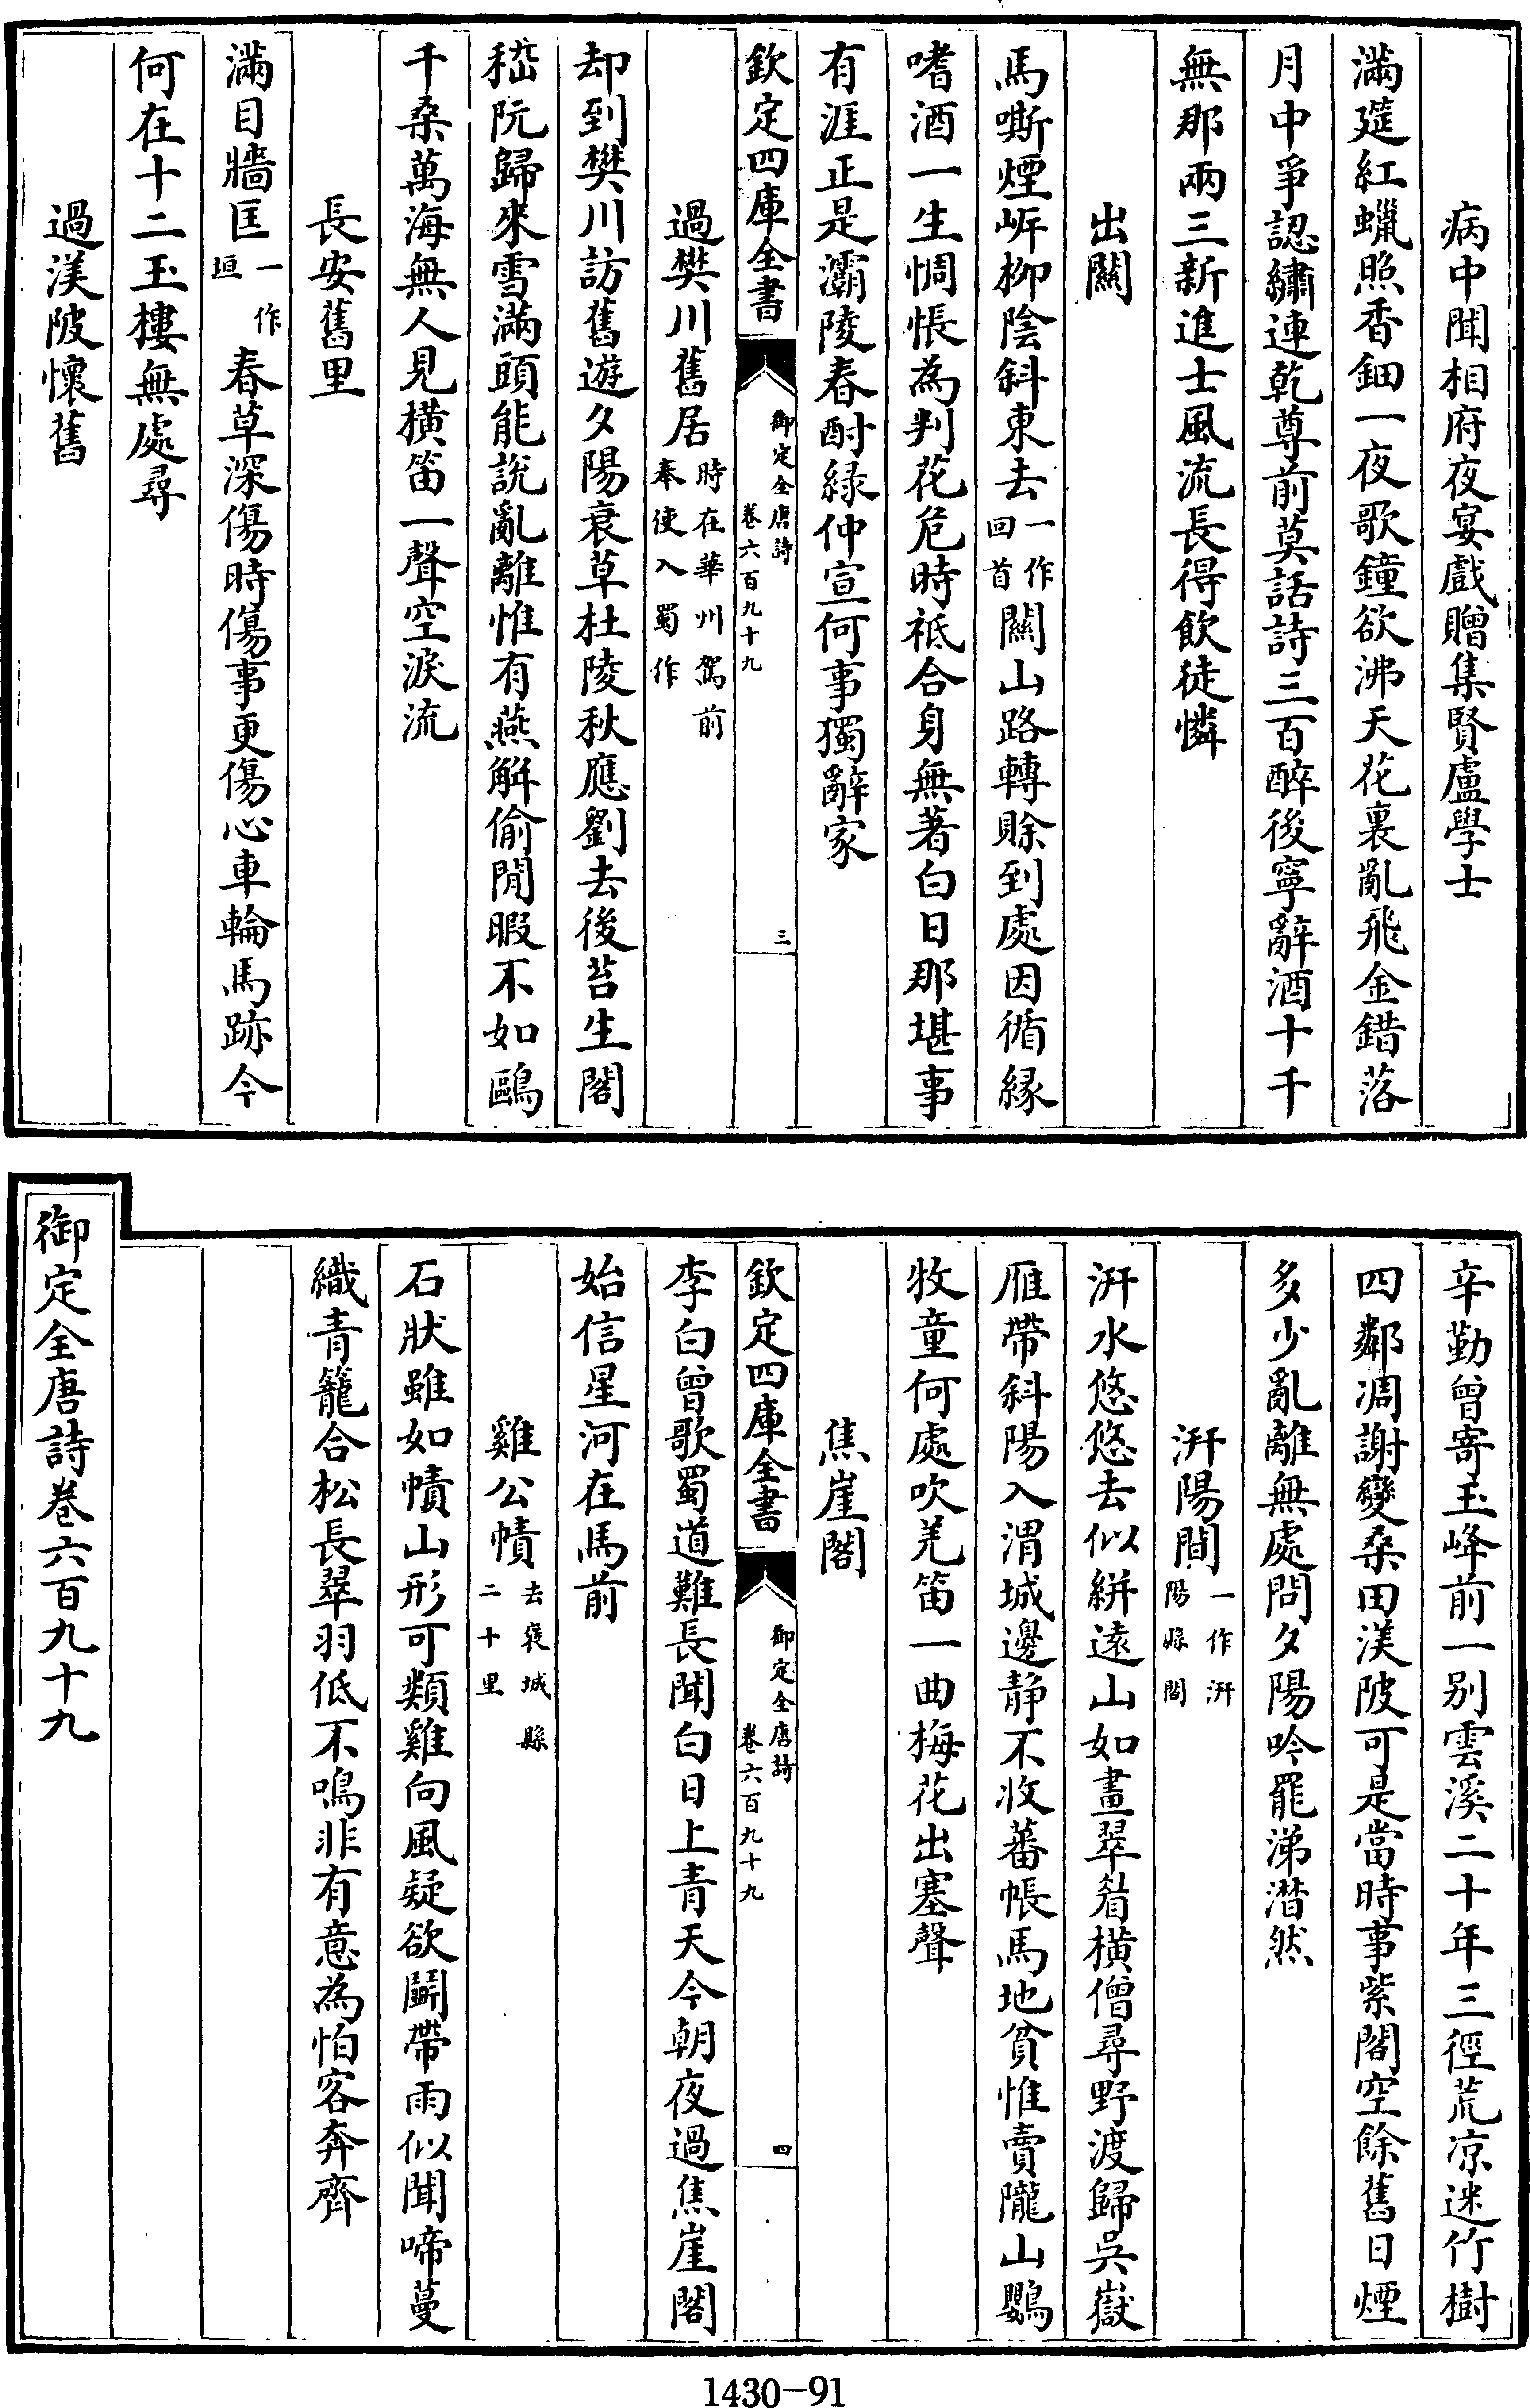 病中聞相府夜宴戲贈集賢盧學士
滿筵紅蠟照香鈿一夜歌鐘欲沸天花裏亂飛金錯落
月中爭認繡連乾尊前莫話詩三百醉後寧辭酒十千
無那兩三新進士風流長得飲徒憐
出關
馬嘶煙岍柳陰斜東去一作回首關山路轉賖到處因循緣
嗜酒一生惆悵為判花危時祗合身無著白日那堪事
有涯正是灞陵春酎緑仲宣何事獨辭家
欽定四庫全書 御定全唐詩 卷六百九十九 三
過樊川舊居時在華州駕前奉使入蜀作
却到樊川訪舊遊夕陽衰草杜陵秋應劉去後苔生閣
嵇阮歸來雪滿頭能說亂離惟有燕解偷閒暇不如鷗
千桑萬海無人見橫笛一聲空淚流
長安舊里
滿目牆匡一作垣春草深傷時傷事更傷心車輪馬跡今
何在十二玉樓無處尋
過渼陂懷舊
辛勤曾寄玉峰前一別雲溪二十年三徑荒凉迷竹樹
四鄰凋謝變桑田渼陂可是當時事紫閣空餘舊日煙
多少亂離無處問夕陽吟罷涕潸然
汧陽間一作汧陽縣閣
汧水悠悠去似絣遠山如畫翠眉橫僧尋野渡歸吳嶽
雁帶斜陽入渭城邊靜不收蕃帳馬地貧惟賣隴山鸚
牧童何處吹羌笛一曲梅花出塞聲
焦崖閣
欽定四庫全書 御定全唐詩 卷六百九十九 四
李白曾歌蜀道難長聞白日上青天今朝夜過焦崖閣
始信星河在馬前
雞公幘去褒城縣二十里
石狀雖如幘山形可類雞向風疑欲鬬帶雨似聞啼蔓
織青籠合松長翠羽低不鳴非有意為怕客奔齊
御定全唐詩卷六百九十九
1430-91